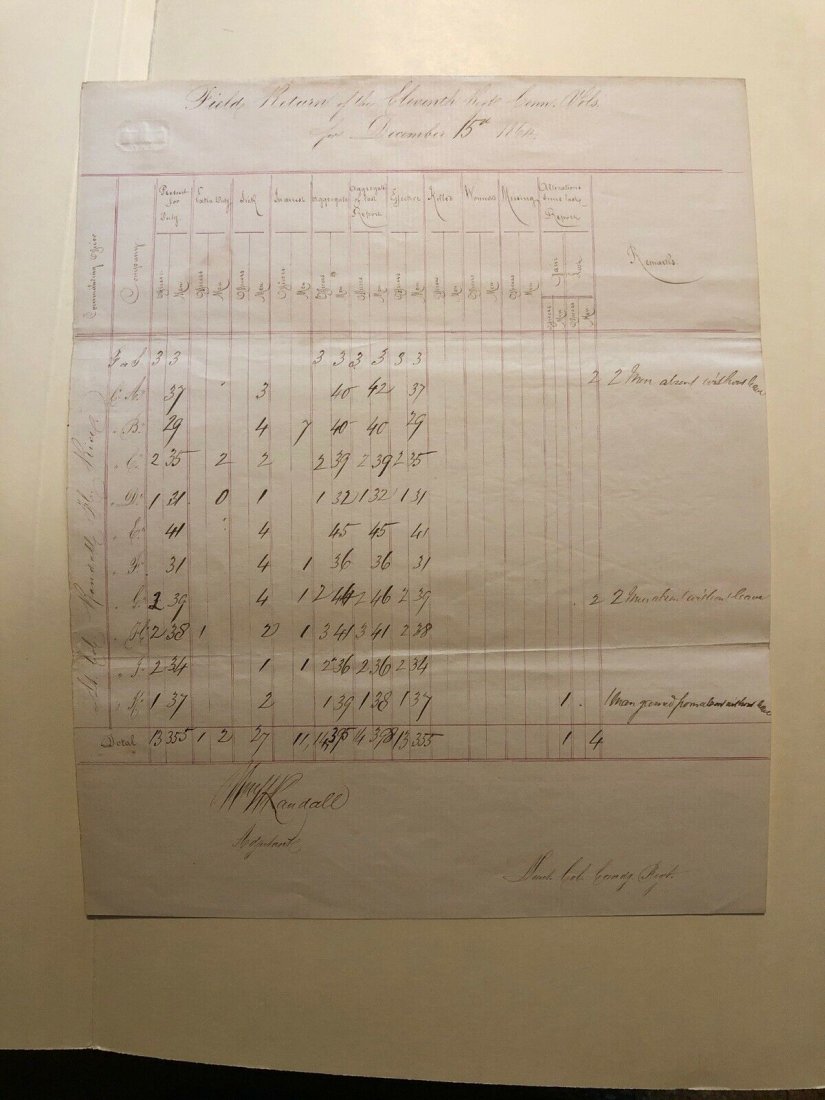 Field Return of the Eleventh Regt Conn. Vols.
for December 15th 1864.
Commanding Officer Company Present for Duty Extra Duty Sick In arrest Aggregate Aggregate of last Report Effective Killed Wounded Missing Alterations since last Report Remarks
Gain
Officers Men Officers Men Officers Men Officers Men Officers Men Officers Men Officers Men Officers Men Officers Men Officers Men Officers Men Officers Men
F & S 3 3 3 3 3 3 3 3
C. A. 37 3 40 42 37 2 2 Men absent without leave
" B. 29 4 7 40 40 29
" C. 2 35 2 2 2 39 2 39 2 35
" D. 1 31 0 1 1 32 1 32 1 31
" E. 41 4 45 45 41
" F. 31 4 1 36 36 31
" G. 2 39 4 1 2 44 2 46 2 39 2 2 Men absent without leave
" H. 2 38 1 2 1 3 41 3 41 2 38
" I. 2 34 1 1 2 36 2 36 2 34
" K. 1 37 2 1 39 1 38 1 37 1 1 Man from absent without leave
Total 13 355 1 2 27 11 14 395 14 398 13 355 1 4
Randall
Adjutant
Lieut. Col. Comdg. Regt.